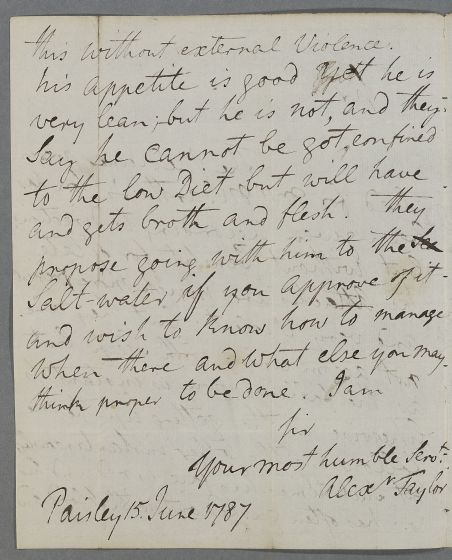 this without external Violence.
his appetite is good yet he is
very lean, but he is not, and they
Say he cannot be got, confined
to the low Diet but will have
and gets broth and flesh. they
propose going with him to the Sea
Salt-water if you approve of it
and wish to know how to manage
when there and what else you may
think proper to be done. I am
Sir
Your most humble Servt.
Alexr Taylor
Paisley 15 June 1787